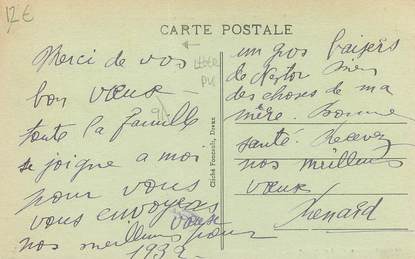 12€
CARTE POSTALE
Merci de vos
bon vœux
toute la famille
se joigne a moi
pour vous
vous envoyers
nos meilleurs vœux pour
1932
Cliché Foucault, Dreux
un gros baisers
de Nestor
des choses de ma
mère. Bonne
santé. Recevez
nos meilleurs
vœux
Menard